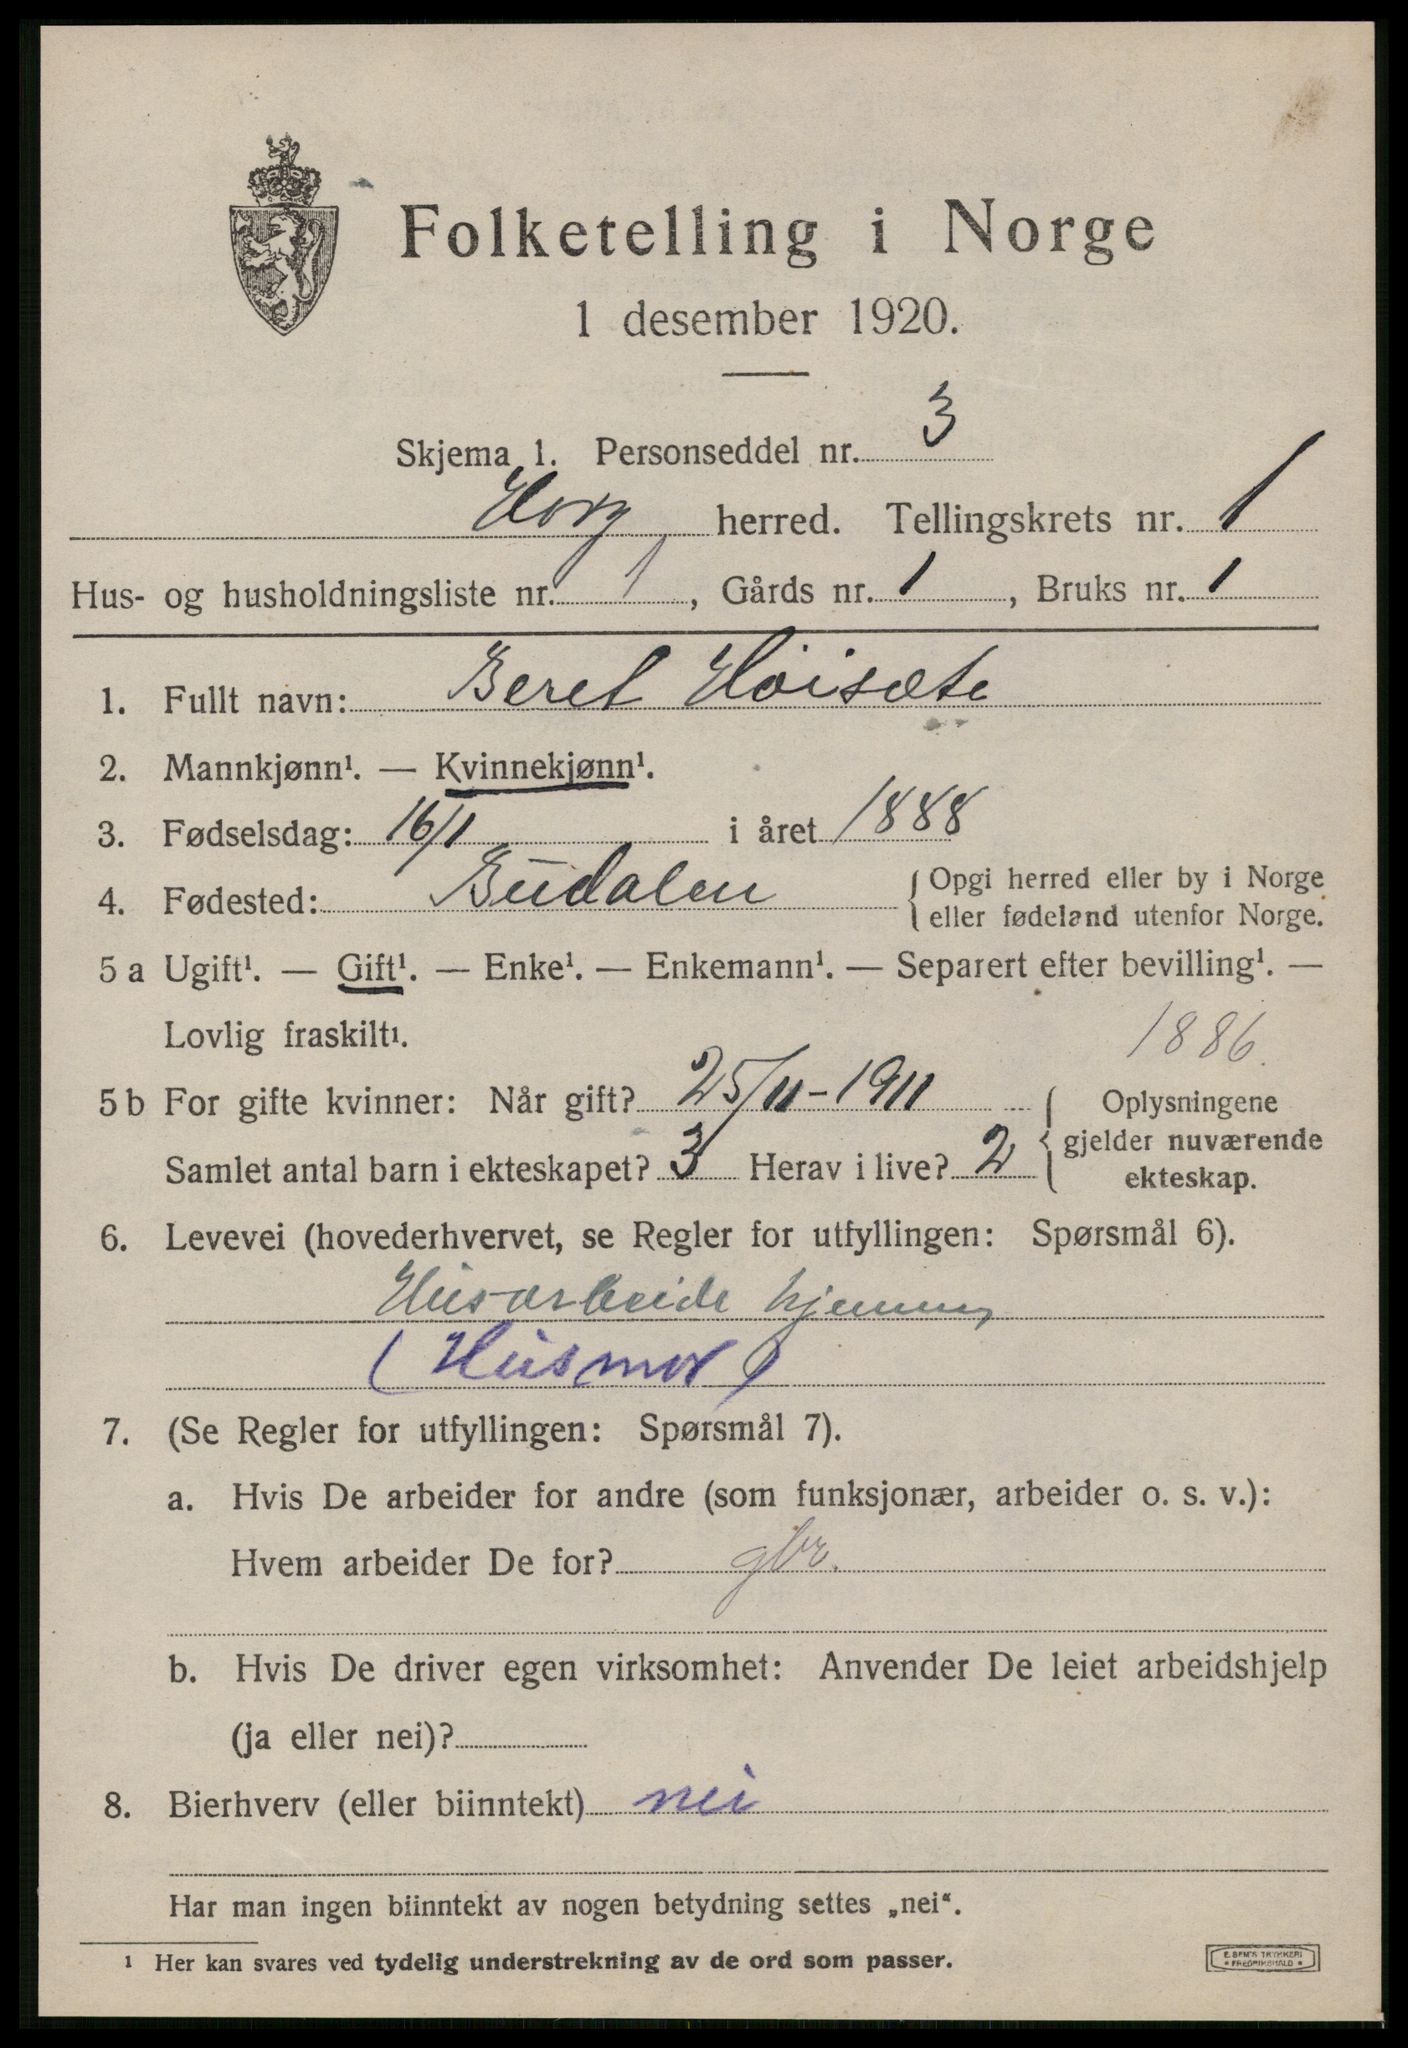 Folketelling i Norge
1 desember 1920.
Skjema 1. Personseddel nr. 3
Horg herred. Tellingskrets nr. 1
Hus- og husholdningsliste nr. 1, Gårds nr. 1, Bruks nr. 1
1. Fullt navn: Beret Höisæte
2. Mannkjønn¹. — Kvinnekjønn¹.
3. Fødselsdag: 16/1 i året 1888
4. Fødested: Budalen { Opgi herred eller by i Norge
eller fødeland utenfor Norge.
5 a Ugift¹. — Gift¹. — Enke¹. — Enkemann¹. — Separert efter bevilling¹. —
Lovlig fraskilt¹.
1886.
5 b For gifte kvinner: Når gift? 25/11-1911 { Oplysningene
gjelder nuværende
Samlet antal barn i ekteskapet? 3 Herav i live? 2
ekteskap.
6. Levevei (hovederhvervet, se Regler for utfyllingen: Spørsmål 6).
Husarbeide hjemme
(Husmor)
7. (Se Regler for utfyllingen: Spørsmål 7).
a. Hvis De arbeider for andre (som funksjonær, arbeider o. s. v.):
Hvem arbeider De for? gbr.
b. Hvis De driver egen virksomhet: Anvender De leiet arbeidshjelp
(ja eller nei)?
8. Bierhverv (eller biinntekt) nei
Har man ingen biinntekt av nogen betydning settes „nei“.
¹ Her kan svares ved tydelig understrekning av de ord som passer.
E. SEM'S TRYKKERI
* FREDRIKSHALD *